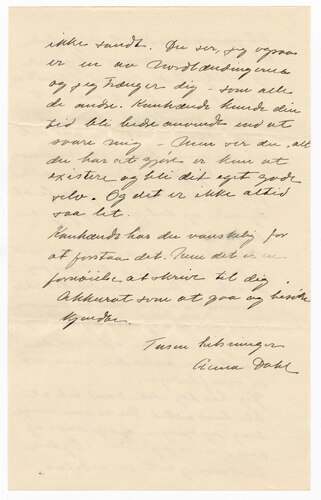 ikke sandt. Du ser, jeg ogsaa
er en av Nordlændingerne
og jeg trænger dig – som alle
de andre. Kanhænde kunde din
tid bli bedre anvendt end at
svare mig – Men ser du, alt
du har at gjøre er kun at
existere og bli dit eget gode
selv. Og det er ikke altid
saa let.
Kanhænde har du vanskelig for
at forstaa det. Men det er en
fornøielse at skrive til dig.
Akkurat som at gaa og besøke
kjendte.
Tusen hilsninger
Anna Dahl